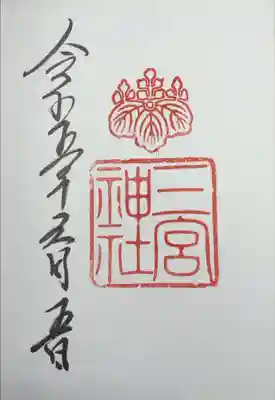 二宮
神社
令和五年五月五日